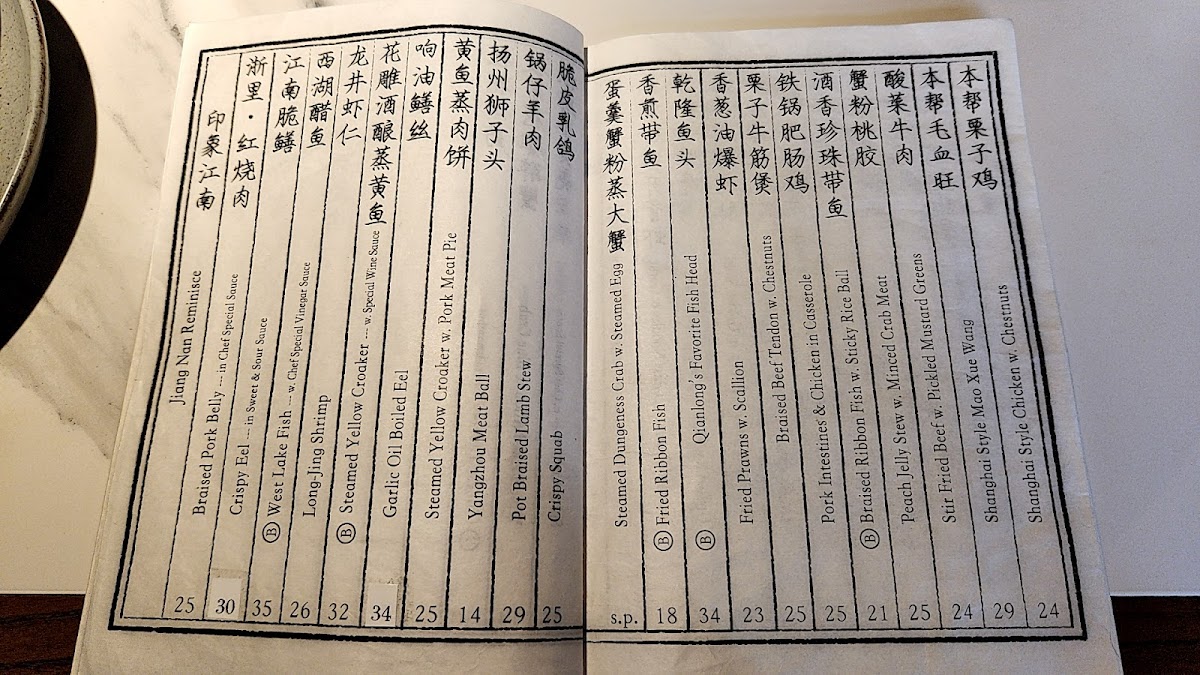 印象江南
Jiang Nan Reminisce
浙里·红烧肉
Braised Pork Belly --- in Chef Special Sauce
25
江南脆鳝
Crispy Eel --- in Sweet & Sour Sauce
30
西湖醋鱼
Ⓑ West Lake Fish --- w. Chef Special Vinegar Sauce
35
龙井虾仁
Long-Jing Shrimp
26
花雕酒酿蒸黄鱼
Ⓑ Steamed Yellow Croaker --- w. Special Wine Sauce
32
响油鳝丝
Garlic Oil Boiled Eel
34
黄鱼蒸肉饼
Steamed Yellow Croaker w. Pork Meat Pie
25
扬州狮子头
Yangzhou Meat Ball
14
锅仔羊肉
Pot Braised Lamb Stew
29
脆皮乳鸽
Crispy Squab
25
蛋羹蟹粉蒸大蟹
Steamed Dungeness Crab w. Steamed Egg
s.p.
香煎带鱼
Ⓑ Fried Ribbon Fish
18
乾隆鱼头
Ⓑ Qianlong's Favorite Fish Head
34
香葱油爆虾
Fried Prawns w. Scallion
23
栗子牛筋煲
Braised Beef Tendon w. Chestnuts
25
铁锅肥肠鸡
Pork Intestines & Chicken in Casserole
25
酒香珍珠带鱼
Ⓑ Braised Ribbon Fish w. Sticky Rice Ball
21
蟹粉桃胶
Peach Jelly Stew w. Minced Crab Meat
25
酸菜牛肉
Stir Fried Beef w. Pickled Mustard Greens
24
本帮毛血旺
Shanghai Style Mao Xue Wang
29
本帮栗子鸡
Shanghai Style Chicken w. Chestnuts
24